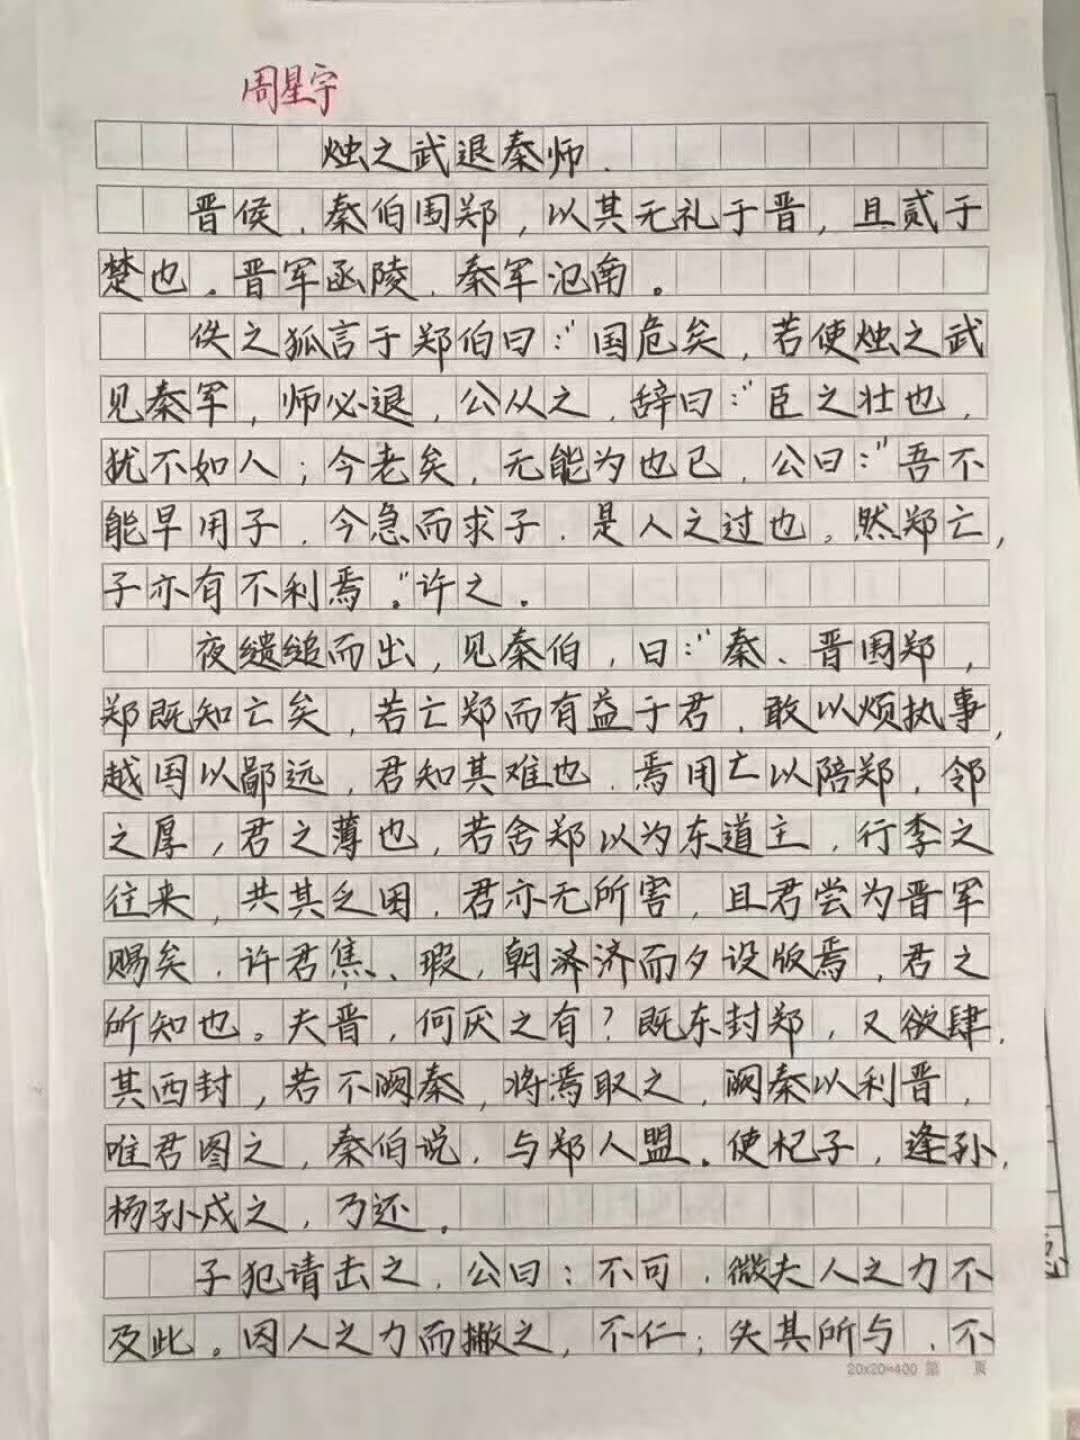 周星宇
烛之武退秦师.
晋侯、秦伯围郑，以其无礼于晋，且贰于
楚也。晋军函陵，秦军氾南。
佚之狐言于郑伯曰："国危矣，若使烛之武
见秦军，师必退，公从之，辞曰："臣之壮也，
犹不如人；今老矣，无能为也已，公曰："吾不
能早用子，今急而求子，是人之过也。然郑亡，
子亦有不利焉。"许之。
夜缒缒而出，见秦伯，曰："秦、晋围郑，
郑既知亡矣，若亡郑而有益于君，敢以烦执事，
越国以鄙远，君知其难也，焉用亡以陪郑，邻
之厚，君之薄也，若舍郑以为东道主，行李之
往来，共其乏困，君亦无所害，且君尝为晋军
赐矣，许君焦、瑕，朝济济而夕设版焉，君之
所知也。夫晋，何厌之有？既东封郑，又欲肆，
其西封，若不阙秦，将焉取之，阙秦以利晋，
唯君图之，秦伯说，与郑人盟。使杞子，逢孙，
杨孙戍之，乃还。
子犯请击之，公曰：不可，微夫人之力不
及此。因人之力而撇之，不仁；失其所与，不
20x20=400 第 页